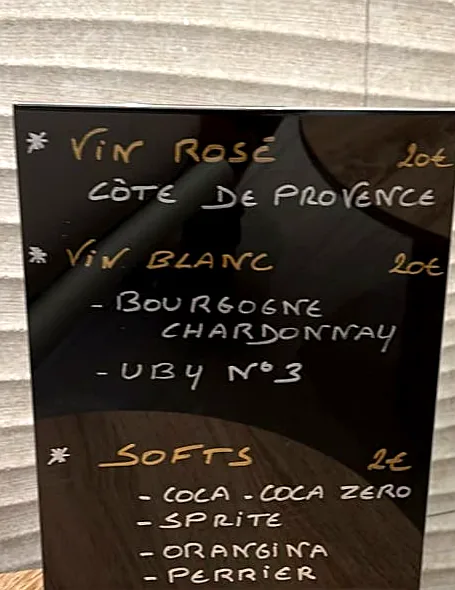 * ViN ROSÉ 20€
CÔTE DE PROVENCE
* ViN BLANC 20€
- BOURGOGNE
CHARDONNAY
- UBY N°3
* SOFTS 2€
- COCA - COCA ZERO
- SPRiTE
- ORANGiNA
- PERRiER